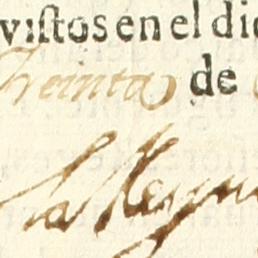 vistos en el di
Treinta de
la Reyn